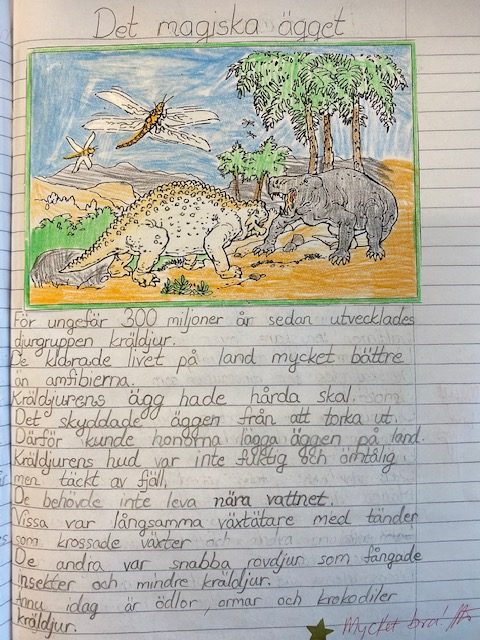 Det magiska ägget
För ungefär 300 miljoner år sedan utvecklades
djurgruppen kräldjur.
De klarade livet på land mycket bättre
än amfibierna.
Kräldjurens ägg hade hårda skal.
Det skyddade äggen från att torka ut.
Därför kunde honorna lägga äggen på land.
Kräldjurens hud var inte fuktig och ömtålig
men täckt av fjäll.
De behövde inte leva nära vattnet.
Vissa var långsamma växtätare med tänder
som krossade växter
De andra var snabba rovdjur som fångade
insekter och mindre kräldjur.
Ännu idag är ödlor, ormar och krokodiler
kräldjur.
Mycket bra!